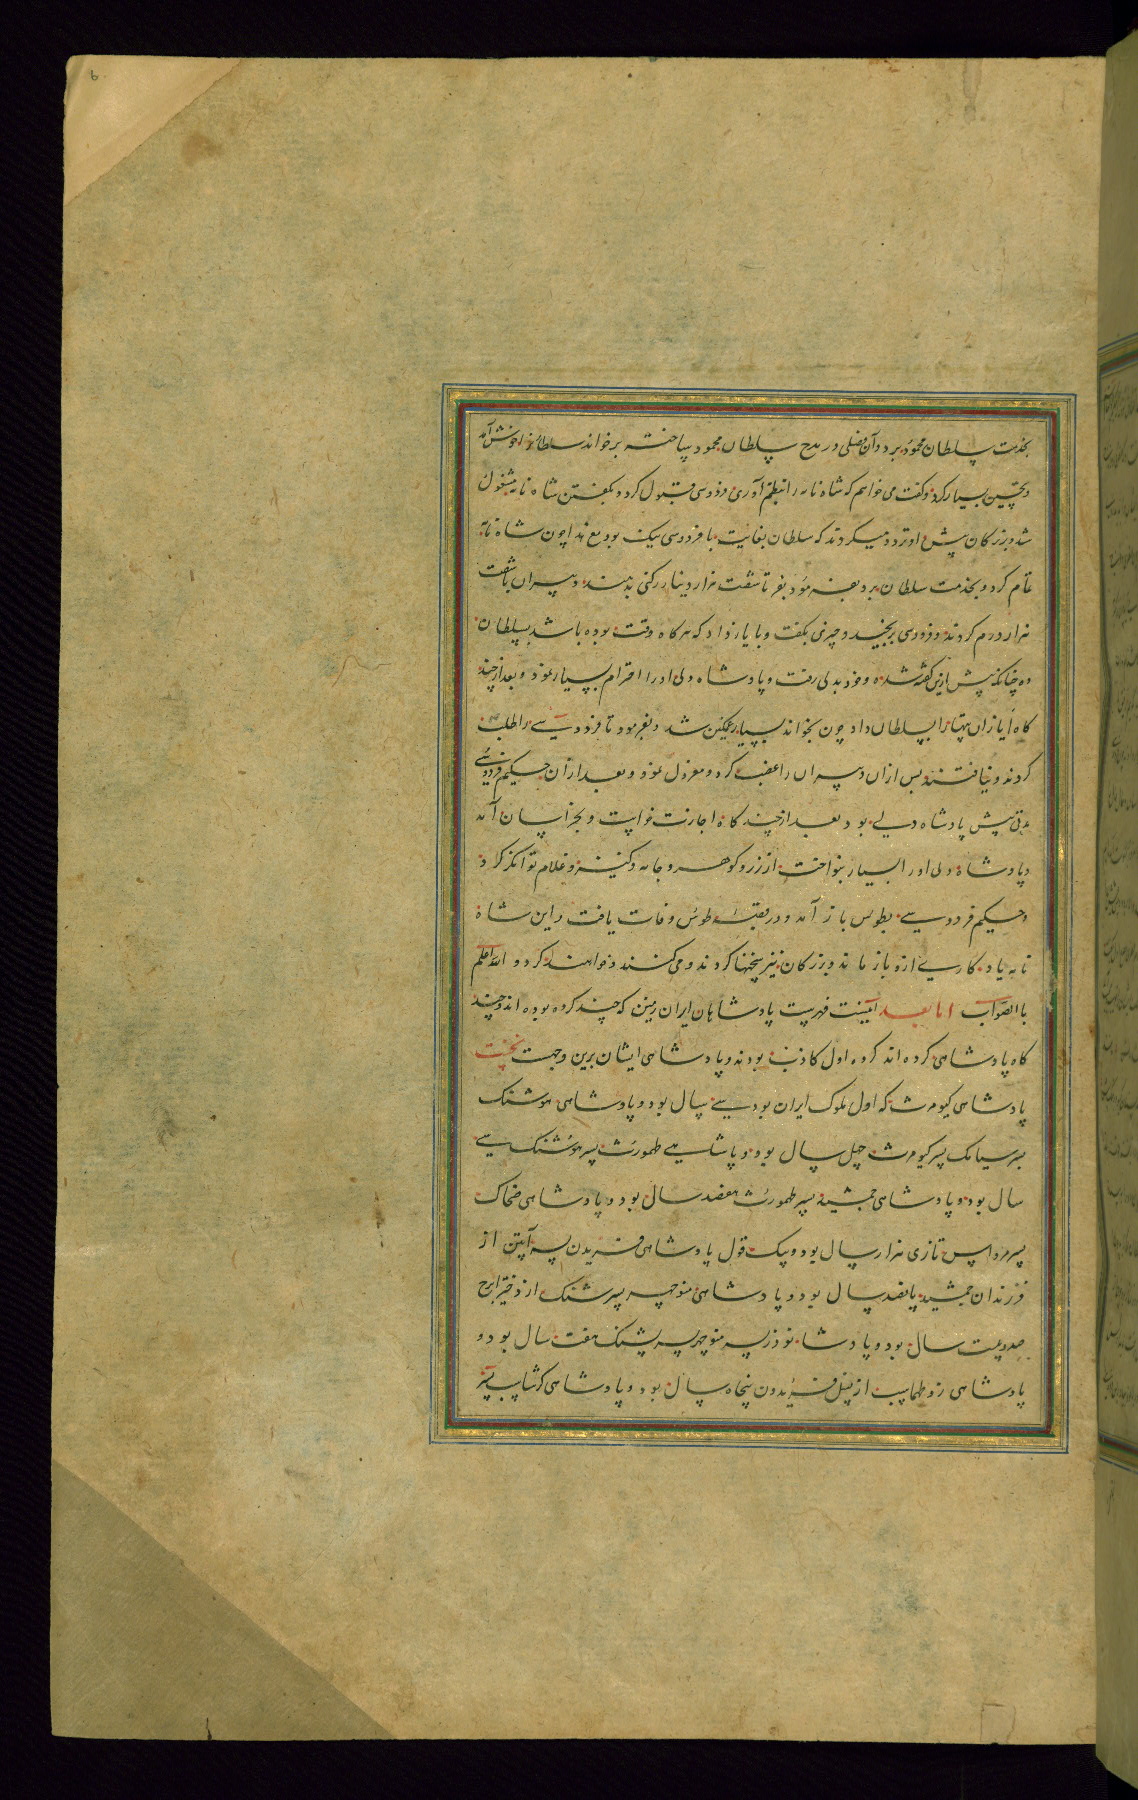 بخدمت سلطان محمود برد و آن فصلی در مدح سلطان محمود ساخته برخواند سلطانرا خوش آمد
و تحسین بسیار کرد و گفت می خواهم که شاه نامه را بنظم آوری فردوسی قبول کرد و بگفتن شاه نامه مشغول
شد و بزرکان پیش او تردد میکردند که سلطان بغایت با فردوسی نیک بود بعد از چون شاه نامه
تمام کرد و بخدمت سلطان برد بفرمود تا شصت هزار دینار رکنی بدهند وپسران با شصت
هزار درم کردند و فردوسی برنجید و چیزی بگفت و بایاز داد که هر کاه وقت بوده باشد بسلطان
ده چنانکه پیش ازین کفته شد و خود بدلی رفت و پادشاه دلی او را احترام بسیار نمود و بعد از چند
کاه ایاز آن بیتها را بسلطان داد چون بخواند بسیار غمکین شد و بفرمود تا فردوسی را طلب
کردند و نیافتند پس ازان وپسران را غضب کرد و معزول نمود و بعد ازان حکیم فردوسی
مدتی پیش پادشاه دلی بود بعد از چند کاه اجازت خواست و بخراسان آمد
و پادشاه دلی او را بسیار بنواخت از زر و کوهر و جامه و کنیز و غلام توانکر کرد
و حکیم فردوسی بطوس باز آمد و در بقیه طوس وفات یافت و این شاه
نامه یادکاری ازو باز ماند و بزرکان نیز سخنها کردند و می کنند و خواهند کرد و الله اعلم
باالصواب اما بعد اینست فهرست پادشاهان ایران زمین که چند کروه بوده اند و چند
کاه پادشاهی کرده اند کروه اول بودند و پادشاهی ایشان برین وجهست نخست
پادشاهی کیومرث که اول ملوک ایران بود سی سال بود و پادشاهی هوشنک
بر سیامک پسر کیومرث چهل سال بود و پاشاهی طهمورث پسر هوشنک سی
سال بود و پادشاهی جمشید پسر طهمورث هفصد سال بود و پادشاهی ضحاک
پسر مرداس تازی هزار سال بود و بیک قول پادشاهی فریدون پسر آبتین از
فرزندان جمشید پانصد سال بود و پادشاهی منوچهر پسر پشنک از دختر ایرج
صد و بیست سال بود و پادشاه نوذر پسر منوچهر پسر پشنک هفت سال بود و
پادشاهی زو طهماسب از نسل فریدون پنجاه سال بود و پادشاهی کرشاسب پسر